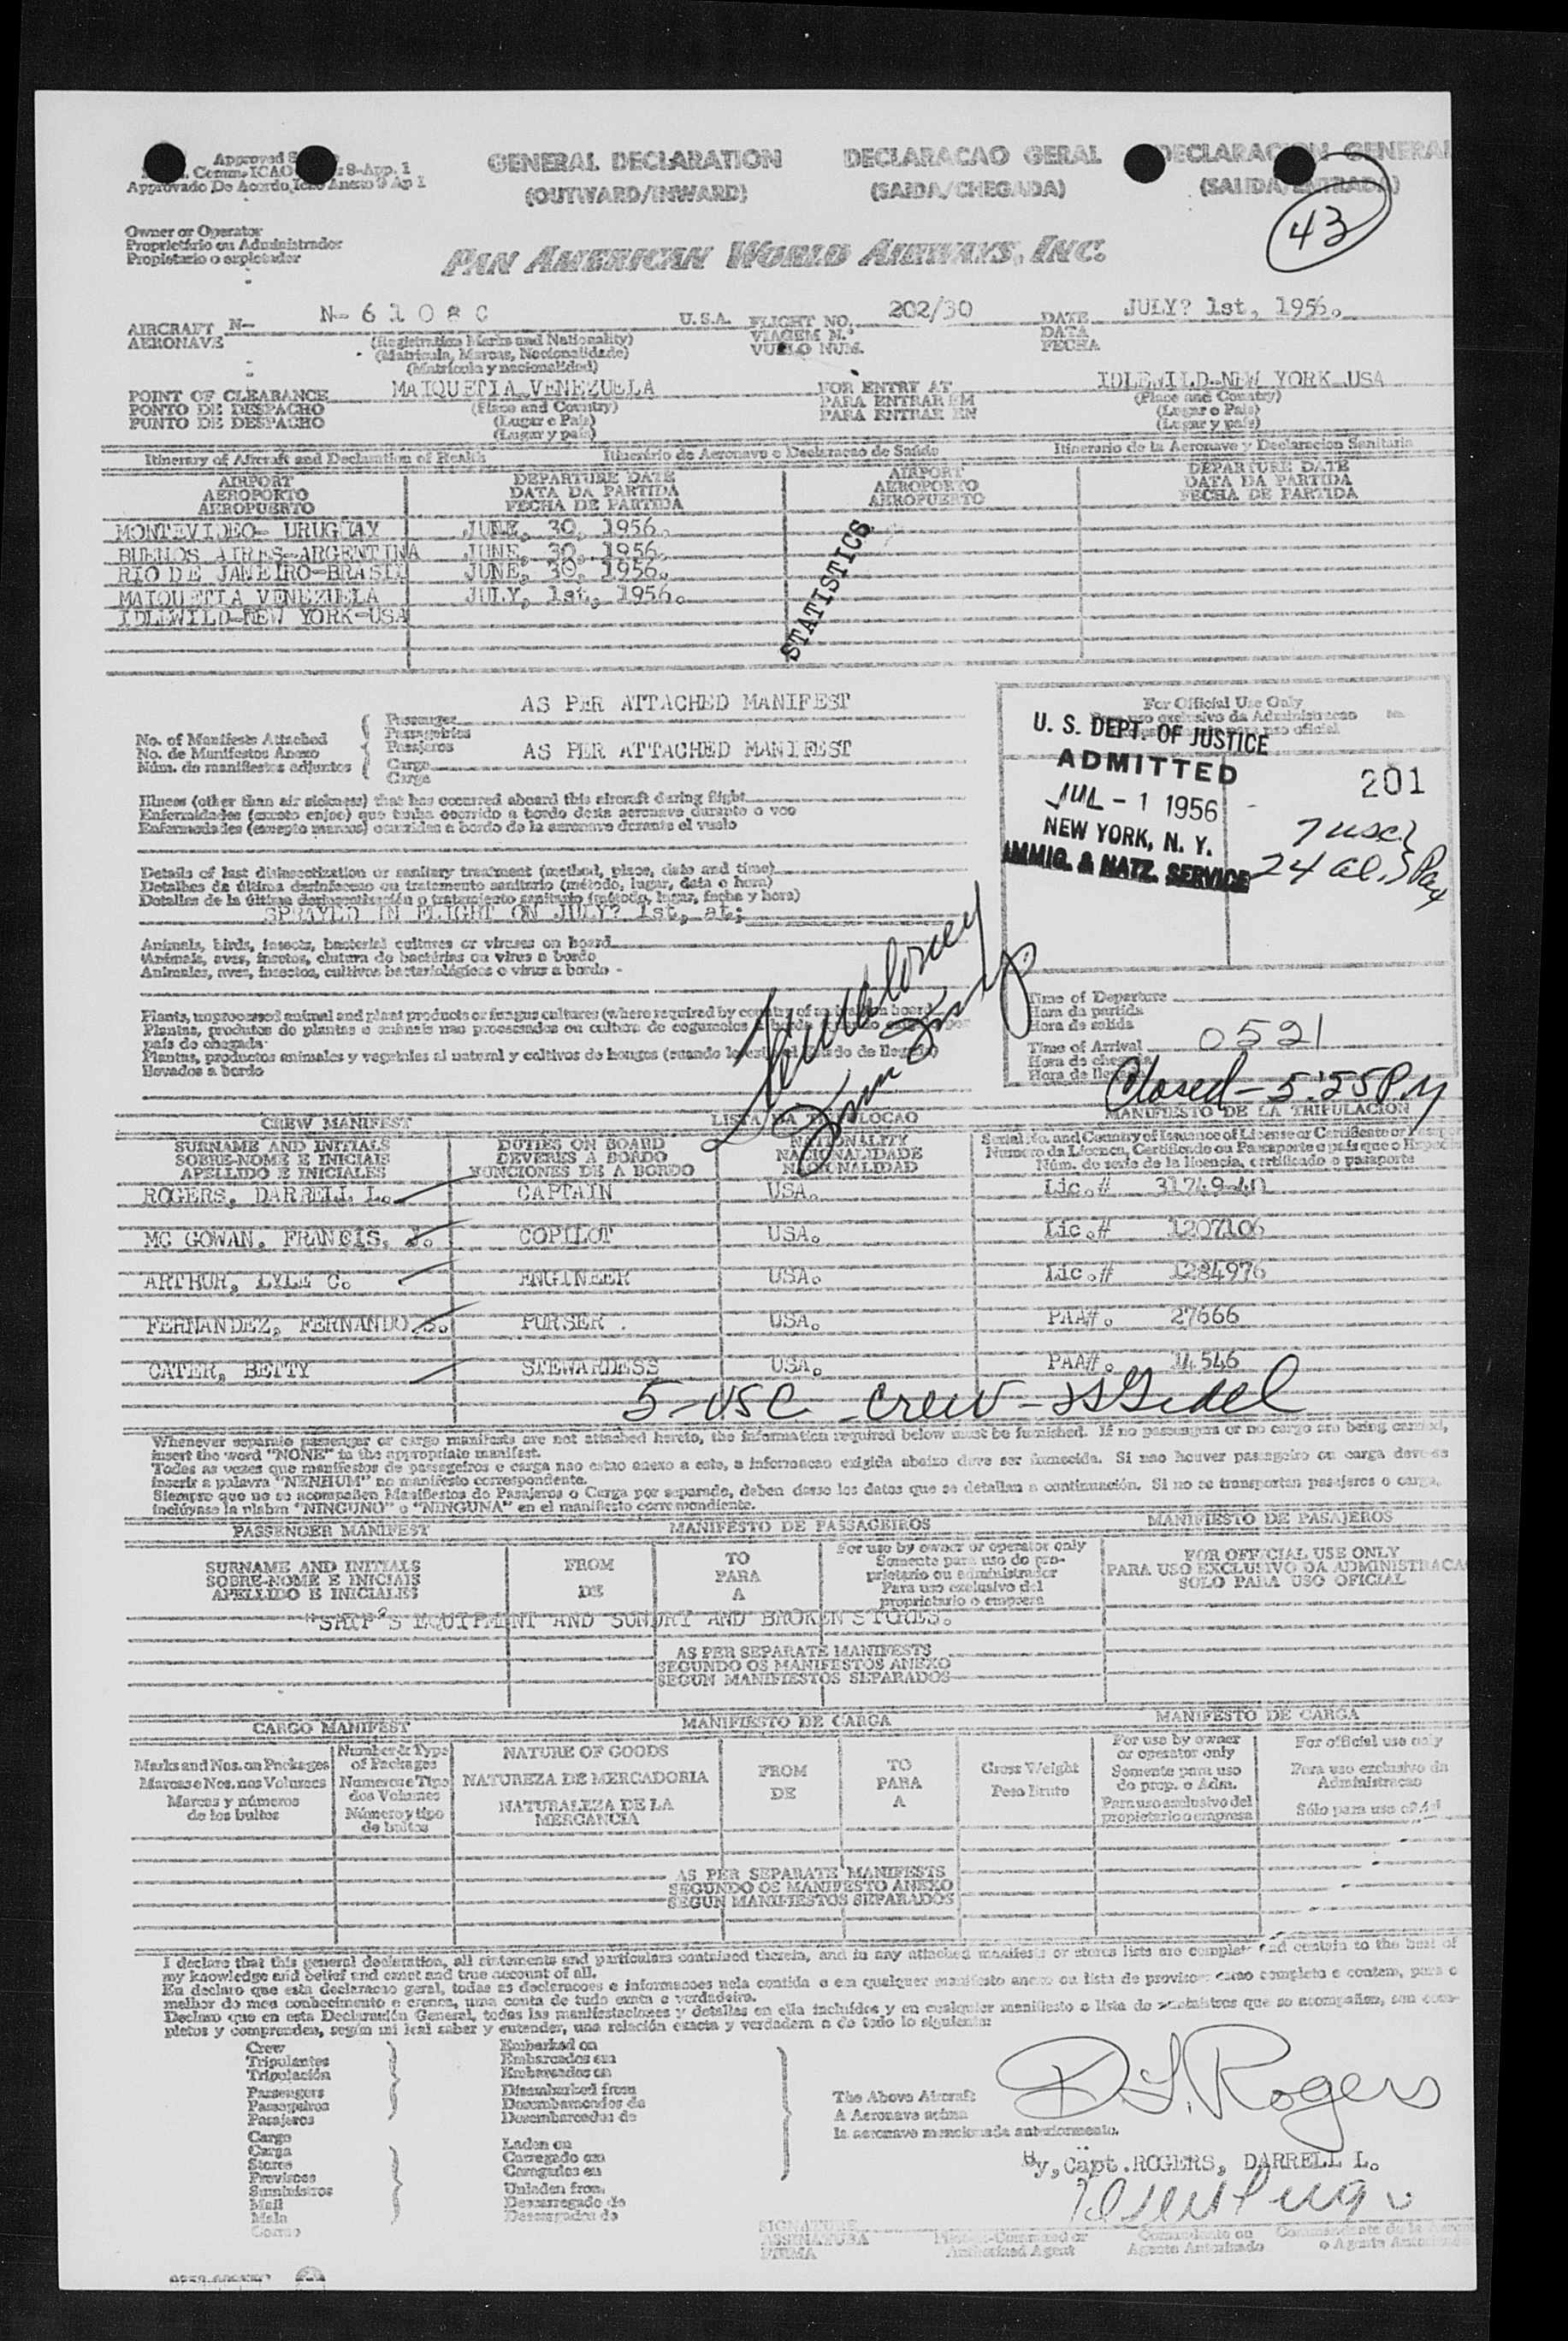 GENERAL DECLARATION DECLARACAO GERAL
(OUTWARD/INWARD) (SAIDA/CHEGADA)
43
Owner or Operator
Proprietário ou Administrador
Propietario o explotador
PAN AMERICAN WORLD AIRWAYS, INC.
AIRCRAFT N- N-6108C U.S.A. FLIGHT NO. 202/30 DATE JULY? 1st, 1956.
AERONAVE (Registration Marks and Nationality) VIAGEM N.º DATA
(Matricula, Marcas, Nocionalidade) VUELO NUM. FECHA
(Matrícula y nacionalidad)
POINT OF CLEARANCE MAIQUETIA VENEZUELA FOR ENTRY AT IDLEWILD-NEW YORK USA
PONTO DE DESPACHO (Place and Country) PARA ENTRAR EM (Place and Country)
PUNTO DE DESPACHO (Lugar e Pais) PARA ENTRAR EN (Lugar o Pais)
(Lugar y país) (Lugar y país)
Itinerary of Aircraft and Declaration of Health Itinerário de Aeronave e Declaracao de Saúde Itinerario de la Aeronave y Declaracion Sanitaria
AIRPORT DEPARTURE DATE AIRPORT DEPARTURE DATE
AEROPORTO DATA DA PARTIDA AEROPORTO DATA DA PARTIDA
AEROPUERTO FECHA DE PARTIDA AEROPUERTO FECHA DE PARTIDA
MONTEVIDEO- URUGUAY JUNE, 30, 1956.
BUENOS AIRES-ARGENTINA JUNE, 30, 1956.
RIO DE JANEIRO-BRASIL JUNE, 30, 1956.
MAIQUETIA VENEZUELA JULY, 1st, 1956.
IDLEWILD-NEW YORK-USA
STATISTICS
AS PER ATTACHED MANIFEST
No. of Manifests Attached Passenger
No. de Manifestos Anexo Passageiros
Núm. de manifiestos adjuntos Pasajeros
AS PER ATTACHED MANIFEST
Cargo
Carga
For Official Use Only
U. S. DEPT. OF JUSTICE
ADMITTED
JUL - 1 1956
NEW YORK, N. Y.
IMMIG. & NATZ. SERVICE
201
7 usc
24 al.
Illness (other than air sickness) that has occurred aboard this aircraft during flight
Enfermidades (exceto enjoo) que tenha ocorrido a bordo desta aeronave durante o voo
Enfermedades (excepto mareos) ocurridas a bordo de la aeronave durante el vuelo
Details of last disinsectization or sanitary treatment (method, place, date and time)
Detalhes da última desinfeccao ou tratamento sanitario (método, lugar, data e hora)
Detalles de la última desinsectización o tratamiento sanitario (método, lugar, fecha y hora)
SPRAYED IN FLIGHT ON JULY? 1st, at;
Animals, birds, insects, bacterial cultures or viruses on board
Animais, aves, insetos, clutura de bactérias ou virus a bordo
Animales, aves, insectos, cultivos bacteriológicos o virus a bordo
Time of Departure
Hora da partida
Hora de salida
Time of Arrival 0521
Closed - 5:55 PM
CREW MANIFEST MANIFIESTO DE LA TRIPULACION
SURNAME AND INITIALS DUTIES ON BOARD NATIONALITY
SOBRE-NOME E INICIAIS DEVERES A BORDO NACIONALIDADE
APELLIDO E INICIALES FUNCIONES DE A BORDO NACIONALIDAD Núm. de serie de la licencia, certificado o pasaporte
ROGERS, DARRELL L. CAPTAIN USA. Lic.# 31749-40
MC GOWAN, FRANCIS, J. COPILOT USA. Lic.# 1207106
ARTHUR, LYLE C. ENGINEER USA. Lic.# 1284976
FERNANDEZ, FERNANDO S. PURSER USA. PAA#. 27666
CATER, BETTY STEWARDESS USA. PAA#. 14546
5 - USC - crew -
Whenever separate passenger or cargo manifests are not attached hereto, the information required below must be furnished. If no passengers or no cargo are being carried,
insert the word "NONE" in the appropriate manifest.
Todas as vezes que manifestos de passageiros e carga nao estao anexo a este, a informacao exigida abaixo deve ser fornecida. Si nao houver passageiro ou carga deve-se
inserir a palavra "NENHUM" no manifesto correspondente.
Siempre que no se acompañen Manifiestos de Pasajeros o Carga por separado, deben darse los datos que se detallan a continuación. Si no se transportan pasajeros o carga,
inclúyase la plabra "NINGUNO" o "NINGUNA" en el manifiesto correspondiente.
PASSENGER MANIFEST MANIFESTO DE PASSAGEIROS MANIFIESTO DE PASAJEROS
SURNAME AND INITIALS FROM TO For use by owner or operator only FOR OFFICIAL USE ONLY
SOBRE-NOME E INICIAIS DE PARA Somente para uso do proprietario ou administrador PARA USO EXCLUSIVO DA ADMINISTRACA
APELLIDO E INICIALES A Para uso exclusivo del propietario o empresa SOLO PARA USO OFICIAL
"SHIP'S EQUIPMENT AND SUNDRY AND BROKEN STORES.
AS PER SEPARATE MANIFESTS
SEGUNDO OS MANIFESTOS ANEXO
SEGUN MANIFIESTOS SEPARADOS
CARGO MANIFEST MANIFIESTO DE CARGA MANIFESTO DE CARGA
Marks and Nos. on Packages Number & Type of Packages NATURE OF GOODS FROM TO Gross Weight For use by owner or operator only For official use only
Marcas e Nos. nos Volumes Numero e Tipo dos Volumes NATUREZA DE MERCADORIA DE PARA Peso Bruto Somente para uso do prop. o Adm. Para uso exclusivo da Administracao
Marcas y números de los bultos Número y tipo de bultos NATURALEZA DE LA MERCANCIA A Para uso exclusivo del propietario o empresa Sólo para uso
AS PER SEPARATE MANIFESTS
SEGUNDO OS MANIFESTO ANEXO
SEGUN MANIFIESTOS SEPARADOS
I declare that this general declaration, all statements and particulars contained therein, and in any attached manifests or stores lists are complete and contain to the best of
my knowledge and belief and exact and true account of all.
Eu declaro que esta declaracao geral, todas as declaracoes e informacoes nela contida e em qualquer manifesto anexo ou lista de
melhor do meu conhecimento e crenca, uma conta de tudo exata e verdadeira.
Declaro que en esta Declaración General, todas las manifestaciones y detalles en ella incluídos y en cualquier manifiesto o lista de
pletos y comprenden, según mi leal saber y entender, una relación exacta y verdadera a de todo lo siguiente:
Crew Embarked on
Tripulantes Embarcados em
Tripulación Embarcados en
Passengers Disembarked from
Passageiros Desembarcados da
Pasajeros Desembarcados de
Cargo Laden on
Carga Carregado em
Stores Cargados en
Provisoes Unladen from
Suministros Descarregado de
Mail Descargados de
Mala
Correo
The Above Aircraft
A Aeronave acima
la aeronave mencionada anteriormente.
D. L. Rogers
By, Capt. ROGERS, DARRELL L.
SIGNATURE
ASSINATURA
FIRMA
Authorized Agent Agente Autorizado